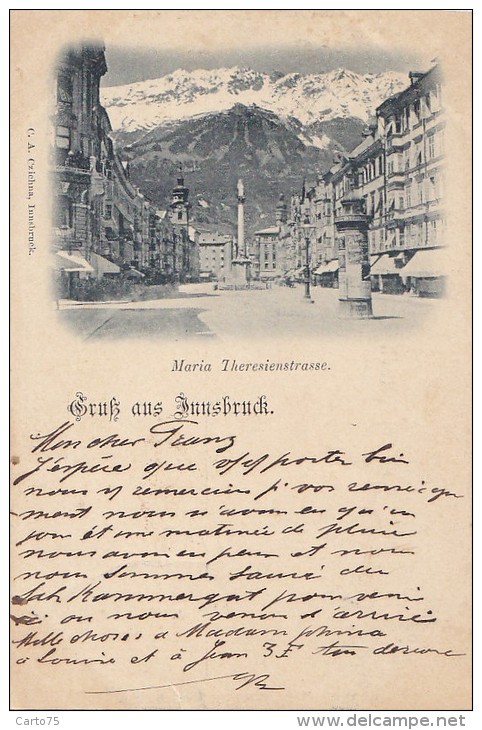 C. A. Czichna, Innsbruck.
Maria Theresienstrasse.
Gruß aus Innsbruck.
Mon cher Franz
J'espère que vous portez bien
nous
ment nous n'avons eu qu'un
jour et une matinée de pluie
nous avons eu peur et nous
nous sommes sauvé du
Salzkammergut pour venir
ici ou nous venons d'arriver
Mille choses a Madam
à Louise et à Jean
Carto75
http://www.delcampe.net